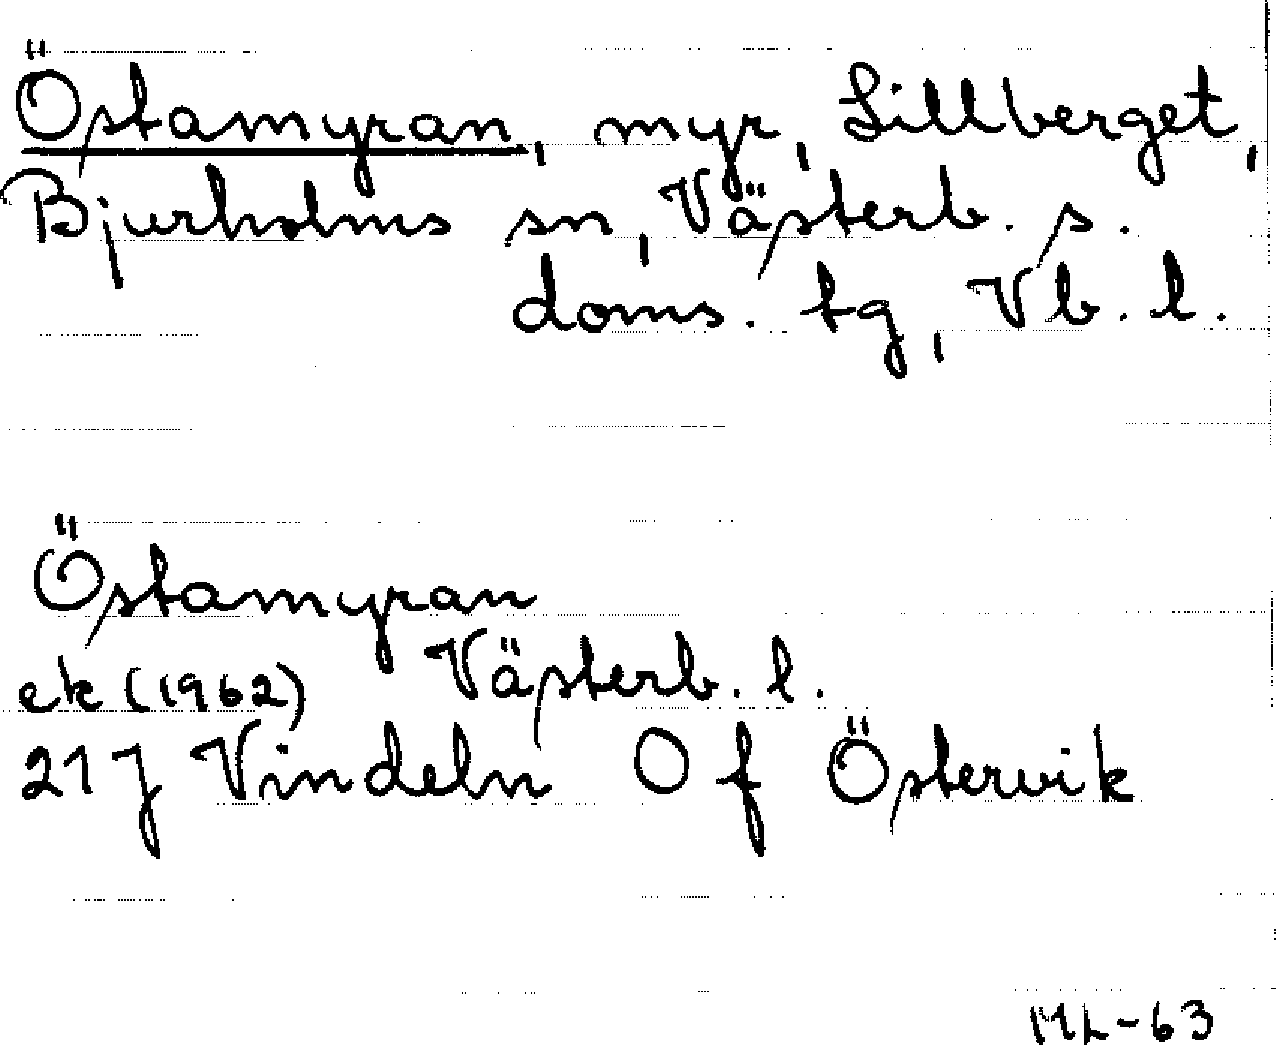 Östamyran, myr, Lillberget,
Bjurholms sn, Västerb. s.
doms. tg, Vb. l.
Östamyran
ek (1962) Västerb. l.
21J Vindeln 0 f Östervik
ML-63